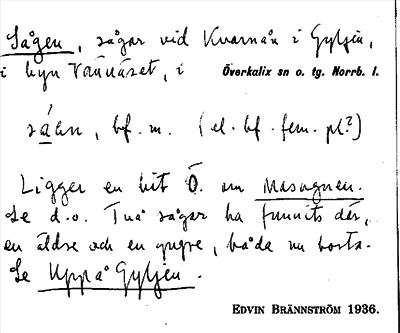 Sågen, sågar vid Kvarnån i Gyljen,
i byn Vännäset, i Överkalix sn o. tg. Norrb. l.
bf. m. (el. bf. fem. pl?)
Ligger en bit Ö. om Masugnen.
Se d.o. Två sågar ha funnits där,
en äldre och en yngre, båda nu borta.
Se Uppå Gyljen.
EDVIN BRÄNNSTRÖM 1936.